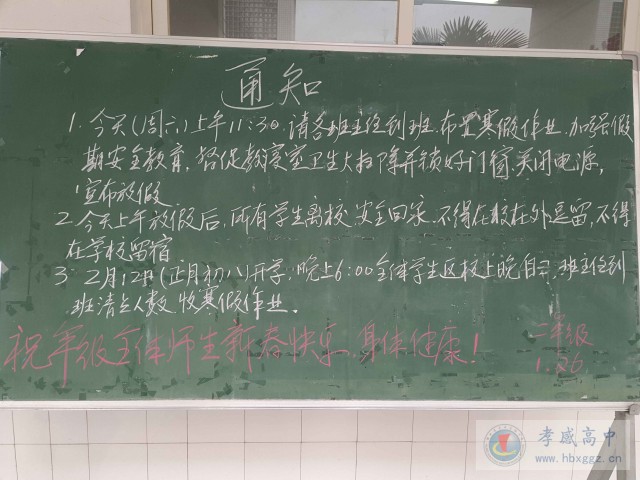 通知
1. 今天(周六)上午11:30,请各班主任到班,布置寒假作业,加强假
期安全教育,督促教寝室卫生大扫除并锁好门窗、关闭电源,
宣布放假.
2. 今天上午放假后,所有学生离校,安全回家,不得在校在外逗留,不得
在学校留宿
3. 2月12日(正月初八)开学,晚上6:00全体学生返校上晚自习,班主任到
班清点人数,收寒假作业.
祝年级全体师生新春快乐 身体健康!
二年级
1.26
孝感高中
www.hbxggz.cn